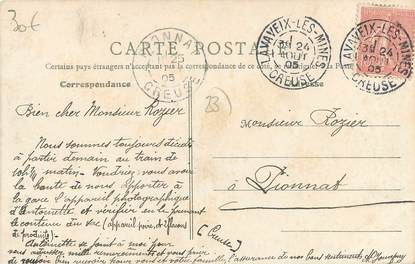 30€
CARTE POSTALE
Certains pays étrangers n'acceptant pas la correspondance de ce côté, se
Correspondance
PIONNAT
25
05
CREUSE
LAVAVEIX-LES-MINES
24
AOUT
05
CREUSE
LAVAVEIX-LES-MINES
24
AOUT
05
CREUSE
23
Bien cher Monsieur Rozier
Nous sommes toujours décidés
à partir demain au train de
10h½ matin. Voudrez-vous avoir
la bonté de nous apporter à
la gare l'appareil photographique
d'Antoinette et vérifier en le prenant
le contenu du sac (appareil, et 2 flacons
de produits).
Antoinette se joint à moi pour
vous mille remerciements et vous
de vouloir bien recevoir pour vous et votre famille, l'assurance de nos bons sentiments
Monsieur Rozier
à Pionnat
(Creuse)